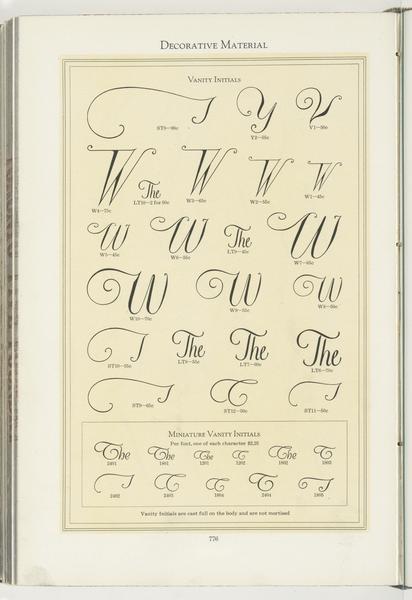 DECORATIVE MATERIAL
VANITY INITIALS
T Y V
Y2—55c V1—50c
W The W W W
W4—75c LT10—2 for 90c W3—65c W2—55c W1—45c
W W The W
W5—45c W6—55c LT9—45c W7—65c
W W W
W10—70c W9—55c W8—50c
T The The The
ST10—55c LT8—55c LT7—60c LT6—70c
T T T
ST9—65c ST12—50c ST11—50c
MINIATURE VANITY INITIALS
Per font, one of each character $2.25
The The The T The T
2401 1801 1201 1202 1802 1803
T T T T T
2402 2403 1804 2404 1805
Vanity Initials are cast full on the body and are not mortised
776